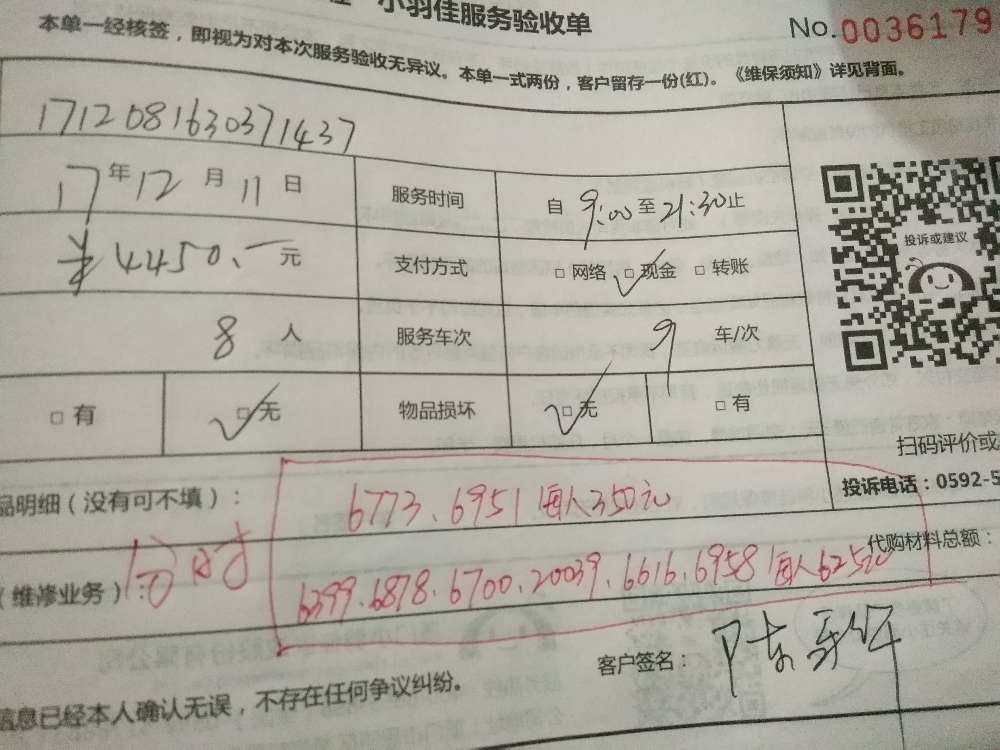 小羽佳服务验收单
No.0036179
本单一经核签，即视为对本次服务验收无异议。本单一式两份，客户留存一份(红)。《维保须知》详见背面。
1712081630371437
17年12月11日 服务时间 自9:00至21:30止
¥4450.一元 支付方式 □网络 □现金 □转账
投诉或建议
8人 服务车次 9车/次
□有 □无 物品损坏 □无 □有
扫码评价或
品明细（没有可不填）：
投诉电话：0592-5
6773、6951每人350元
代购材料总额：
（维修业务）：
6399.6878.6700.20039.6616.6958每人625元
客户签名：
信息已经本人确认无误，不存在任何争议纠纷。